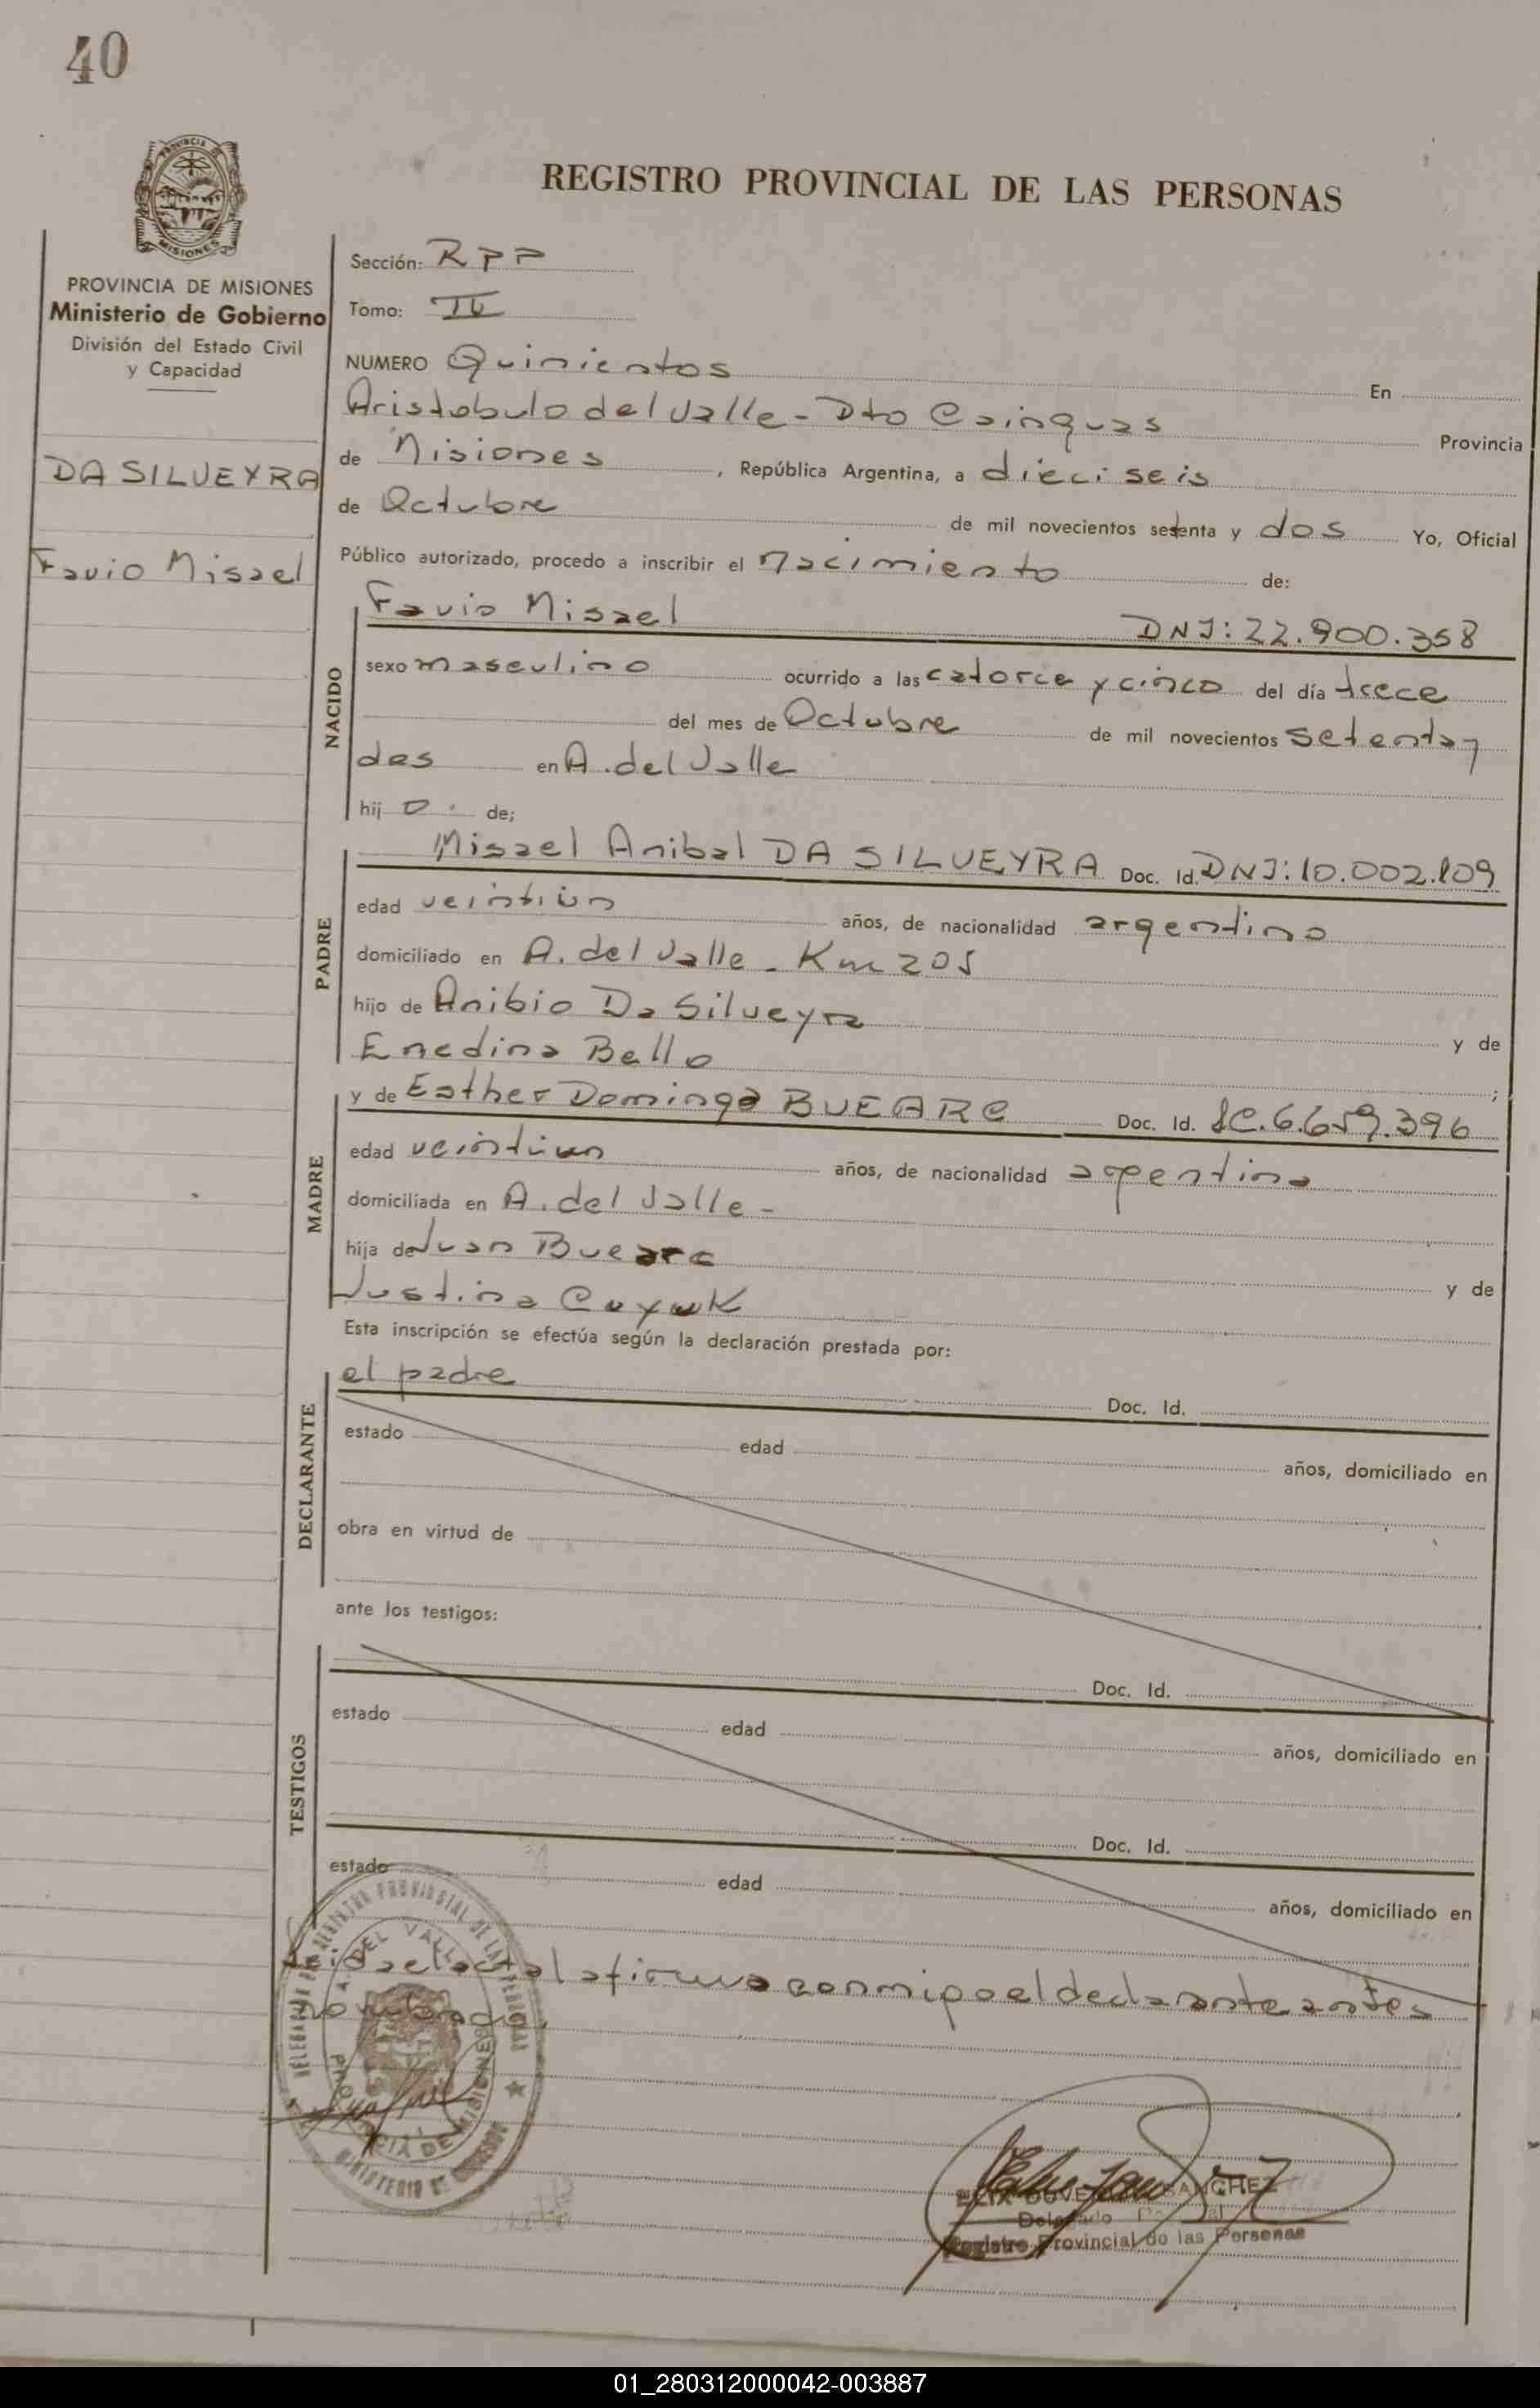 40
PROVINCIA
MISIONES
REGISTRO PROVINCIAL DE LAS PERSONAS
PROVINCIA DE MISIONES
Ministerio de Gobierno
División del Estado Civil
y Capacidad
DA SILVEYRA
Favio Misael
Sección: RPP
Tomo: IV
NUMERO Quinientos En
Aristobulo del Valle - Dto Cainguas Provincia
de Misiones, República Argentina, a dieciseis
de Octubre de mil novecientos setenta y dos Yo, Oficial
Público autorizado, procedo a inscribir el nacimiento de:
NACIDO
Favio Misael DNI: 22.900.358
sexo masculino ocurrido a las catorce y cinco del día trece
del mes de Octubre de mil novecientos setenta y
dos en A. del Valle
hij o. de;
PADRE
Misael Anibal DA SILVEYRA Doc. Id. DNI: 10.002.109
edad veintiún años, de nacionalidad argentino
domiciliado en A. del Valle - Km 205
hijo de Anibio Da Silveyra y de
Enedina Bello ;
MADRE
y de Esther Dominga BUEARC Doc. Id. LC. 6.659.396
edad veintiun años, de nacionalidad argentina
domiciliada en A. del Valle -
hija de Juan Buearc y de
Justina
Esta inscripción se efectúa según la declaración prestada por:
DECLARANTE
el padre Doc. Id.
estado edad años, domiciliado en
obra en virtud de
ante los testigos:
TESTIGOS
Doc. Id.
estado edad años, domiciliado en
Doc. Id.
estado edad años, domiciliado en
Leida el acta la firma conmigo el declarante antes
nombrado.
DELEGADO DEL REGISTRO PROVINCIAL DE LAS PERSONAS
A. DEL VALLE
PROVINCIA DE MISIONES
MINISTERIO DE GOBIERNO
FELIX SANCHEZ
Delegado
Registro Provincial de las Personas
01_280312000042-003887